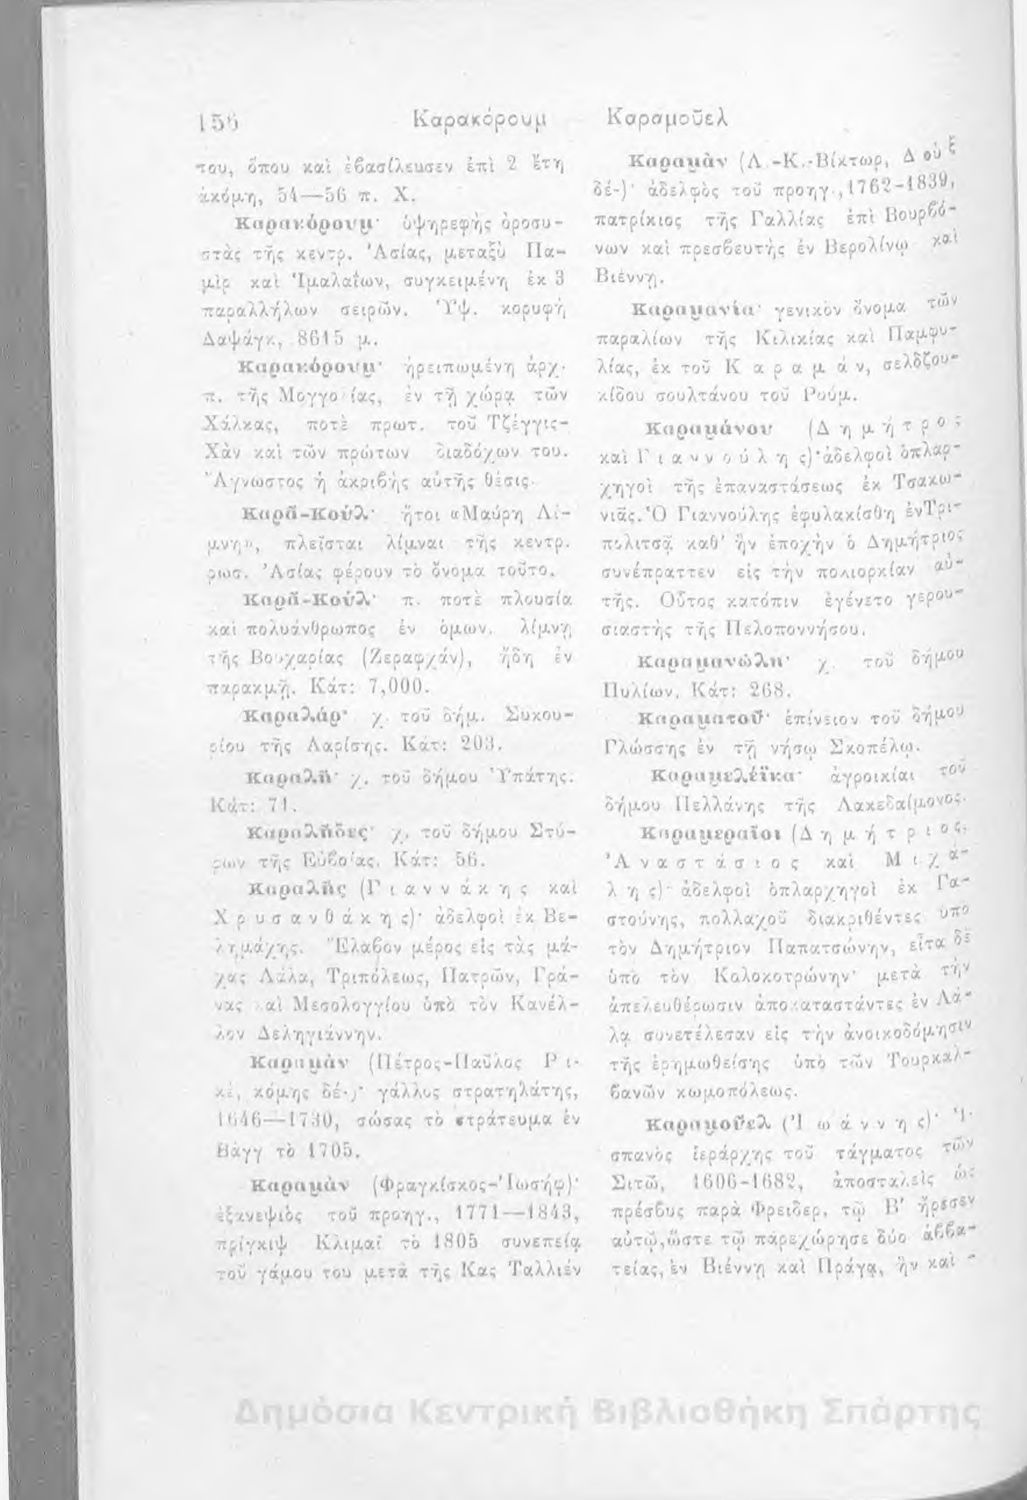 156 Καρακόρουμ Καραμοῦελ
του, ὅπου καὶ ἐβασίλευσεν ἐπὶ 2 ἔτη
ἀκόμη, 54—56 π. Χ.
Καρακόρουμ· ὑψηρεφὴς ὀροσυ-
στὰς τῆς κεντρ. Ἀσίας, μεταξὺ Πα-
μὶρ καὶ Ἱμαλαΐων, συγκειμένη ἐκ 3
παραλλήλων σειρῶν. Ὑψ. κορυφὴ
Δαψάγκ, 8615 μ.
Καρακόρουμ· ἠρειπωμένη ἀρχ.
π. τῆς Μογγο ίας, ἐν τῇ χώρᾳ τῶν
Χάλκας, ποτὲ πρωτ. τοῦ Τζέγγις-
Χὰν καὶ τῶν πρώτων διαδόχων του.
Ἄγνωστος ἡ ἀκριβὴς αὐτῆς θέσις.
Καρᾶ-Κούλ· ἤτοι «Μαύρη Λί-
μνη», πλεῖσται λίμναι τῆς κεντρ.
ρωσ. Ἀσίας φέρουν τὸ ὄνομα τοῦτο.
Καρᾶ-Κούλ· π. ποτὲ πλουσία
καὶ πολυάνθρωπος ἐν ὁμων. λίμνῃ
τῆς Βουχαρίας (Ζεραφχάν), ἤδη ἐν
παρακμῇ. Κάτ: 7,000.
Καραλάρ· χ. τοῦ δήμ. Συκου-
ρίου τῆς Λαρίσης. Κάτ: 203.
Καραλῆ· χ. τοῦ δήμου Ὑπάτης.
Κάτ: 71.
Καραλῆδες· χ. τοῦ δήμου Στύ-
ρων τῆς Εὐβοίας. Κάτ: 56.
Καραλῆς (Γιαννάκης καὶ
Χρυσανθάκης)· ἀδελφοὶ ἐκ Βε-
λημάχης. Ἔλαβον μέρος εἰς τὰς μά-
χας Λάλα, Τριπόλεως, Πατρῶν, Γρά-
νας καὶ Μεσολογγίου ὑπὸ τὸν Κανέλ-
λον Δεληγιάννην.
Καραμὰν (Πέτρος-Παῦλος Ρι-
κέ, κόμης δέ-)· γάλλος στρατηλάτης,
1646—1730, σώσας τὸ στράτευμα ἐν
Βάγγ τὸ 1705.
Καραμὰν (Φραγκίσκος-Ἰωσήφ)·
ἐξανεψιὸς τοῦ προηγ., 1771—1843,
πρίγκιψ Κλιμαὶ τὸ 1805 συνεπείᾳ
τοῦ γάμου του μετὰ τῆς Κας Ταλλιέν
Καραμὰν (Λ.-Κ.-Βίκτωρ, Δοὺξ
δέ-)· ἀδελφὸς τοῦ προηγ., 1762-1839,
πατρίκιος τῆς Γαλλίας ἐπὶ Βουρβό-
νων καὶ πρεσβευτὴς ἐν Βερολίνῳ καὶ
Βιέννῃ.
Καραμανία· γενικὸν ὄνομα τῶν
παραλίων τῆς Κιλικίας καὶ Παμφυ-
λίας, ἐκ τοῦ Καραμάν, σελδζου-
κίδου σουλτάνου τοῦ Ρούμ.
Καραμάνου (Δημήτρος
καὶ Γιαννούλης)· ἀδελφοὶ ὁπλαρ-
χηγοὶ τῆς ἐπαναστάσεως ἐκ Τσακω-
νιᾶς. Ὁ Γιαννούλης ἐφυλακίσθη ἐν Τρι-
πολιτσᾷ καθ' ἣν ἐποχὴν ὁ Δημήτριος
συνέπραττεν εἰς τὴν πολιορκίαν αὐ-
τῆς. Οὗτος κατόπιν ἐγένετο γερου-
σιαστὴς τῆς Πελοποννήσου.
Καραμανώλη· χ. τοῦ δήμου
Πυλίων. Κάτ: 268.
Καραματοῦ· ἐπίνειον τοῦ δήμου
Γλώσσης ἐν τῇ νήσῳ Σκοπέλῳ.
Καραμελέϊκα· ἀγροικίαι τοῦ
δήμου Πελλάνης τῆς Λακεδαίμονος.
Καραμεραῖοι (Δημήτριος,
Ἀναστάσιος καὶ Μιχά-
λης)· ἀδελφοὶ ὁπλαρχηγοὶ ἐκ Γα-
στούνης, πολλαχοῦ διακριθέντες ὑπὸ
τὸν Δημήτριον Παπατσώνην, εἶτα δὲ
ὑπὸ τὸν Κολοκοτρώνην· μετὰ τὴν
ἀπελευθέρωσιν ἀποκαταστάντες ἐν Λά-
λᾳ συνετέλεσαν εἰς τὴν ἀνοικοδόμησιν
τῆς ἐρημωθείσης ὑπὸ τῶν Τουρκαλ-
βανῶν κωμοπόλεως.
Καραμοῦελ (Ἰωάννης)· Ἱ-
σπανὸς ἱεράρχης τοῦ τάγματος τῶν
Σιτῶ, 1606-1682, ἀποσταλεὶς ὡς
πρέσβυς παρὰ Φρειδερ. τῷ Β' ἤρεσεν
αὐτῷ, ὥστε τῷ παρεχώρησε δύο ἀββα-
τείας, ἐν Βιέννῃ καὶ Πράγᾳ, ἣν καὶ
Δημόσια Κεντρική Βιβλιοθήκη Σπάρτης